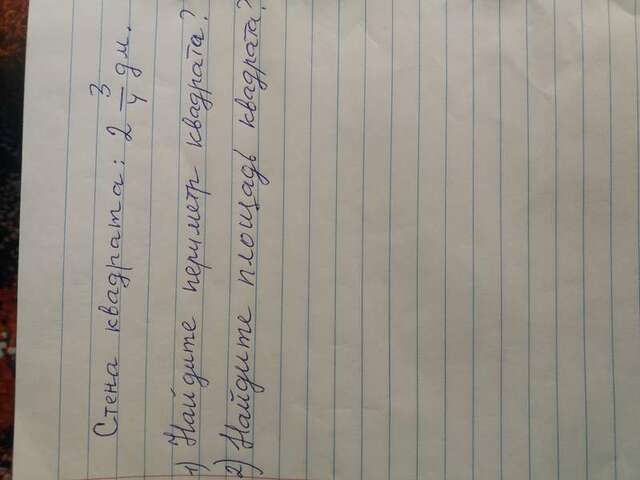 Стена квадрата: 2 3/4 дм.
1) Найдите периметр квадрата?
2) Найдите площадь квадрата?